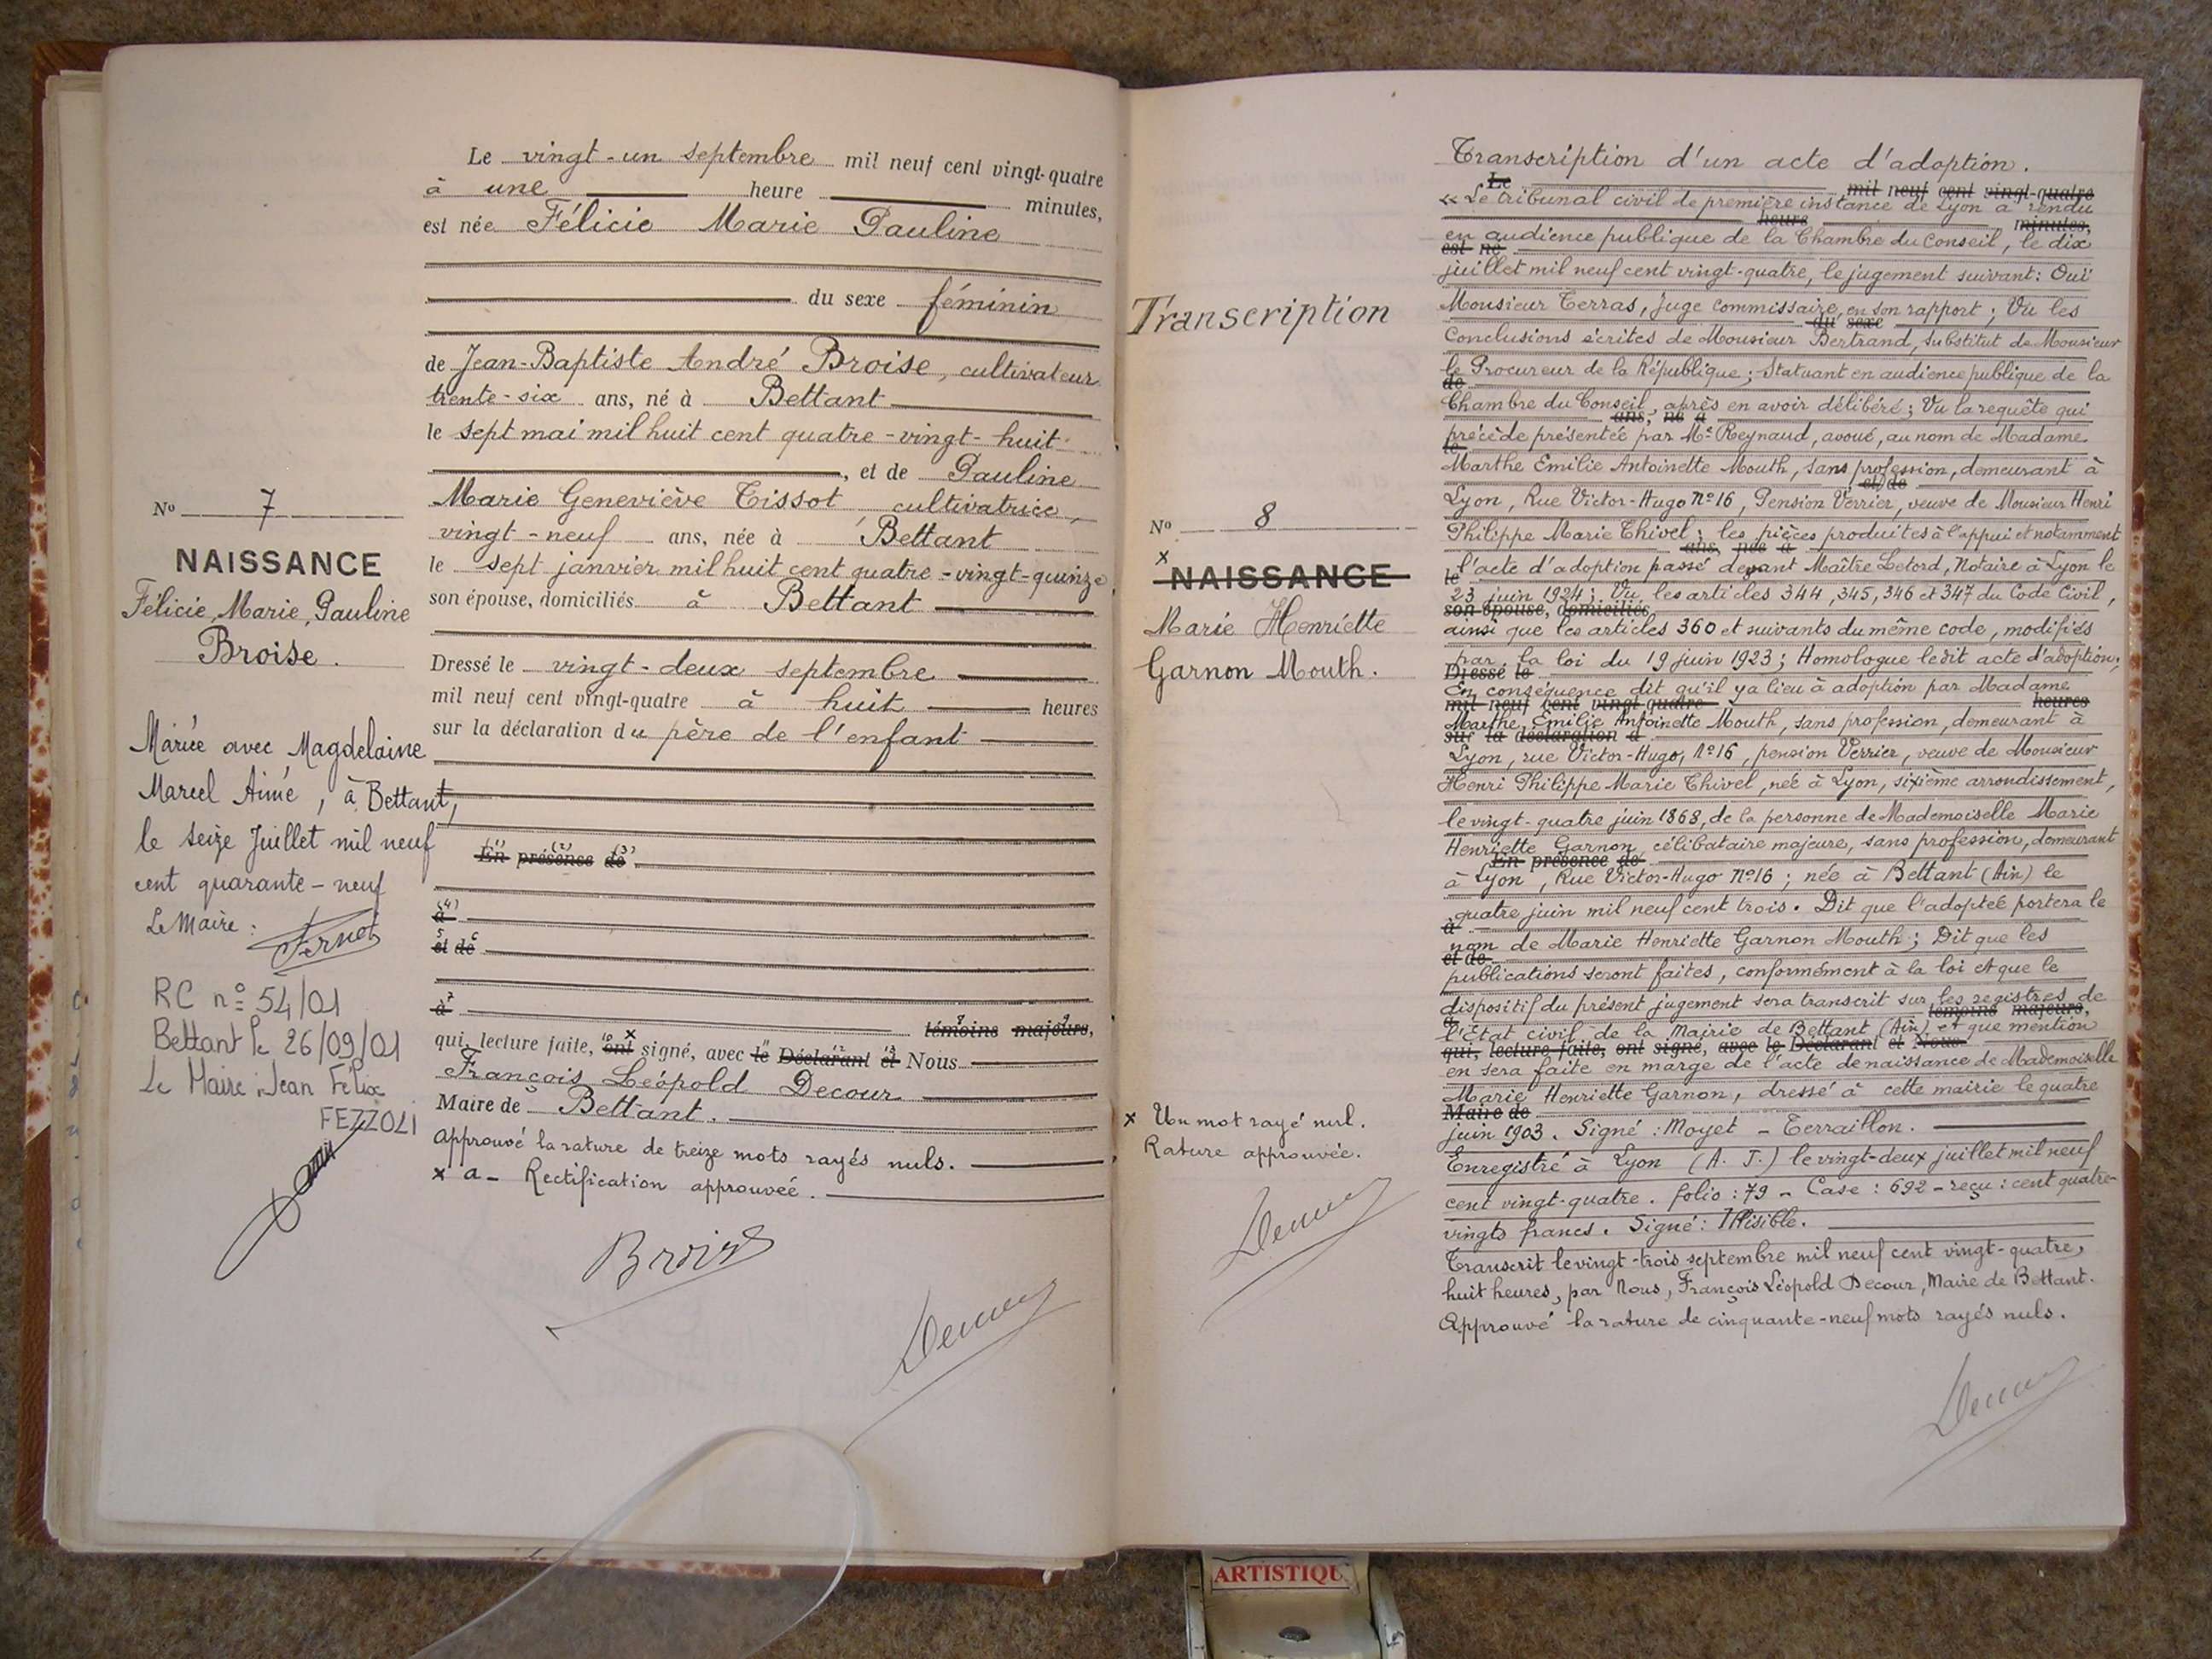 Le vingt-un septembre mil neuf cent vingt-quatre
à une heure minutes,
est née Félicie Marie Pauline
du sexe féminin
de Jean-Baptiste André Broise, cultivateur
trente-six ans, né à Bettant
le sept mai mil huit cent quatre-vingt-huit
, et de Pauline
Marie Geneviève Tissot, cultivatrice,
vingt-neuf ans, née à Bettant
le sept janvier mil huit cent quatre-vingt-quinze
son épouse, domiciliés à Bettant
Dressé le vingt-deux septembre
mil neuf cent vingt-quatre à huit heures
sur la déclaration du père de l'enfant
(1) (2) (3)
En présence de
(4)
à
5 6
et de
7
à
8 9
témoins majeurs,
10 x 11 12 13
qui, lecture faite, ont signé, avec le Déclarant et Nous
François Léopold Decour
Maire de Bettant.
Approuvé la rature de treize mots rayés nuls.
x a - Rectification approuvée.
Broise
Decour
No 7
NAISSANCE
Félicie, Marie, Pauline
Broise.
Mariée avec Magdelaine
Marcel Aimé, à Bettant,
le seize Juillet mil neuf
cent quarante-neuf
Le Maire :
RC n° 54/01
Bettant le 26/09/01
Le Maire : Jean Félix
FEZZOLI
Transcription
No 8
x
NAISSANCE
Marie Henriette
Garnon Mouth.
x Un mot rayé nul.
Rature approuvée.
Decour
Transcription d'un acte d'adoption.
Le mil neuf cent vingt-quatre
« Le tribunal civil de première instance de Lyon a rendu
heure minutes,
en audience publique de la Chambre du Conseil, le dix
est né
juillet mil neuf cent vingt-quatre, le jugement suivant : Ouï
Monsieur Terras, juge commissaire, en son rapport ; Vu les
du sexe
Conclusions écrites de Monsieur Bertrand, substitut de Monsieur
le Procureur de la République ; Statuant en audience publique de la
de
Chambre du Conseil, après en avoir délibéré ; Vu la requête qui
ans, né à
précède présentée par Me Reynaud, avoué, au nom de Madame
le
Marthe Emilie Antoinette Mouth, sans profession, demeurant à
et de
Lyon, Rue Victor-Hugo No 16, Pension Verrier, veuve de Monsieur Henri
Philippe Marie Thivel ; les pièces produites à l'appui et notamment
ans, née à
l'acte d'adoption passé devant Maître Letord, Notaire à Lyon le
le
23 juin 1924 ; Vu les articles 344, 345, 346 et 347 du Code Civil,
son épouse, domiciliés
ainsi que les articles 360 et suivants du même code, modifiés
par la loi du 19 juin 1923 ; Homologue ledit acte d'adoption ;
Dressé le
En conséquence dit qu'il y a lieu à adoption par Madame
mil neuf cent vingt-quatre heures
Marthe, Emilie Antoinette Mouth, sans profession, demeurant à
sur la déclaration d
Lyon, rue Victor-Hugo, No 16, pension Verrier, veuve de Monsieur
Henri Philippe Marie Thivel, née à Lyon, sixième arrondissement,
le vingt-quatre juin 1868, de la personne de Mademoiselle Marie
Henriette Garnon, célibataire majeure, sans profession, demeurant
En présence de
à Lyon, Rue Victor-Hugo No 16 ; née à Bettant (Ain) le
quatre juin mil neuf cent trois. Dit que l'adoptée portera le
à
nom de Marie Henriette Garnon Mouth ; Dit que les
et de
publications seront faites, conformément à la loi et que le
dispositif du présent jugement sera transcrit sur les registres de
à témoins majeurs,
l'Etat civil de la Mairie de Bettant (Ain) et que mention
qui, lecture faite, ont signé, avec le Déclarant et Nous
en sera faite en marge de l'acte de naissance de Mademoiselle
Marie Henriette Garnon, dressé à cette mairie le quatre
Maire de
juin 1903. Signé : Moyet - Terraillon.
Enregistré à Lyon (A. J.) le vingt-deux juillet mil neuf
cent vingt-quatre. folio : 79 - Case : 692 - reçu : cent quatre-
vingts francs. Signé : Illisible.
Transcrit le vingt-trois septembre mil neuf cent vingt-quatre,
huit heures, par Nous, François Léopold Decour, Maire de Bettant.
Approuvé la rature de cinquante-neuf mots rayés nuls.
Decour
ARTISTIQU